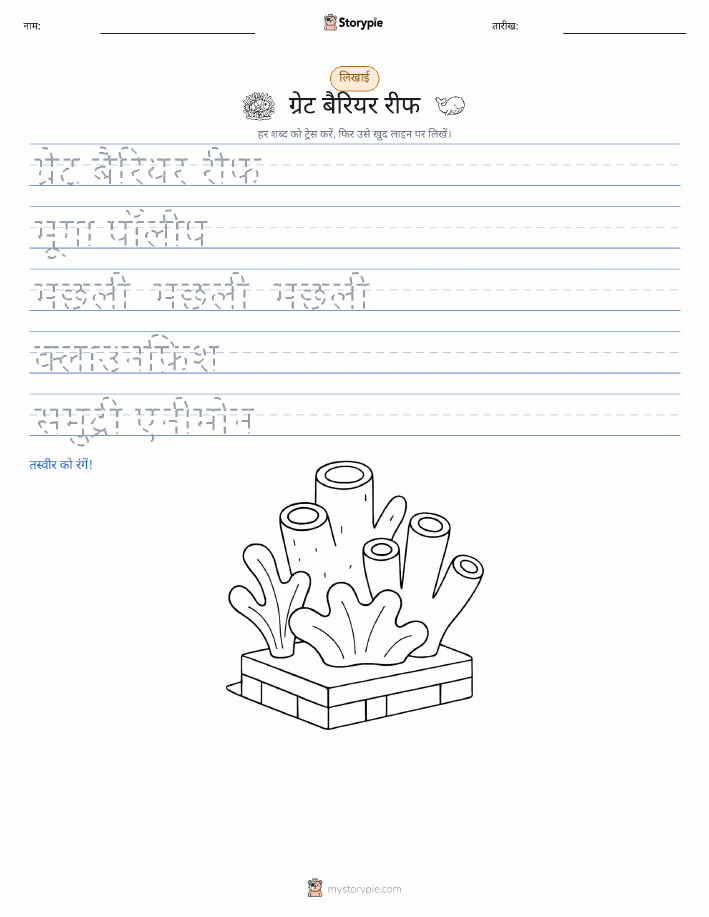 नाम:
Storypie
तारीख:
लिखाई
ग्रेट बैरियर रीफ
हर शब्द को ट्रेस करें, फिर उसे खुद लाइन पर लिखें।
ग्रेट बैरियर रीफ
मूंगा पॉलीप
मछली मछली मछली
क्लाउनफ़िश
समुद्री एनीमोन
तस्वीर को रंगें!
mystorypie.com